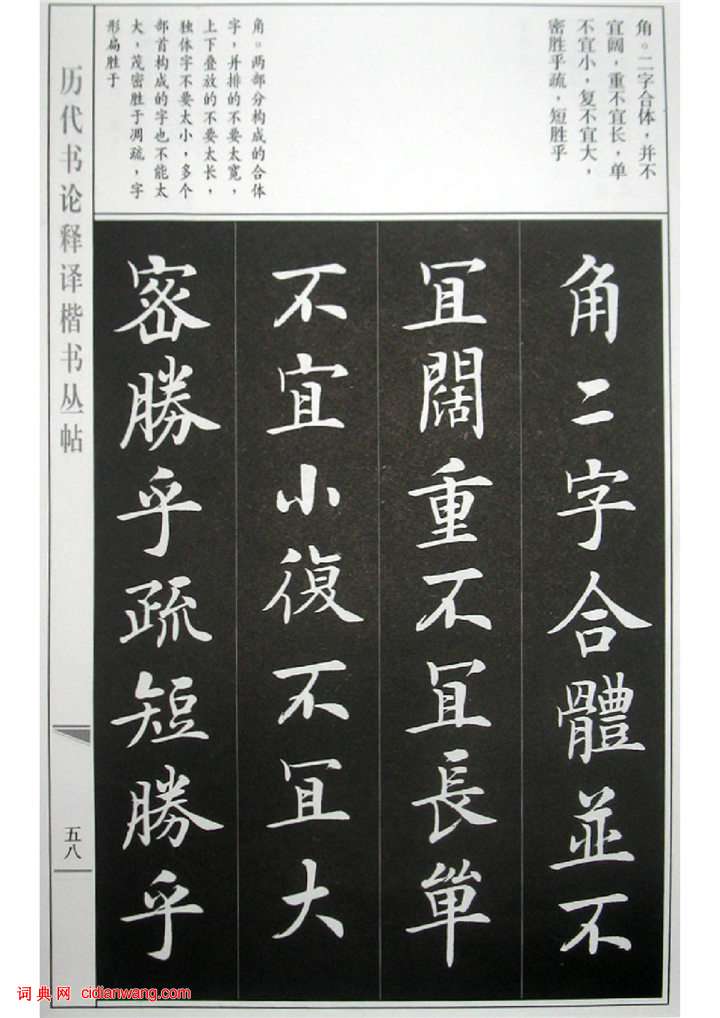 角。二字合体，并不
宜阔，重不宜长，单
不宜小，复不宜大，
密胜乎疏，短胜乎
角。两部分构成的合体
字，并排的不要太宽，
上下叠放的不要太长，
独体字不要太小，多个
部首构成的字也不能太
大，茂密胜于凋疏，字
形扁胜于
历代书论释译楷书丛帖
五八
角二字合體並不
冝闊重不冝長單
不宜小復不冝大
密勝乎疏短勝乎
词典网 cidianwang.com